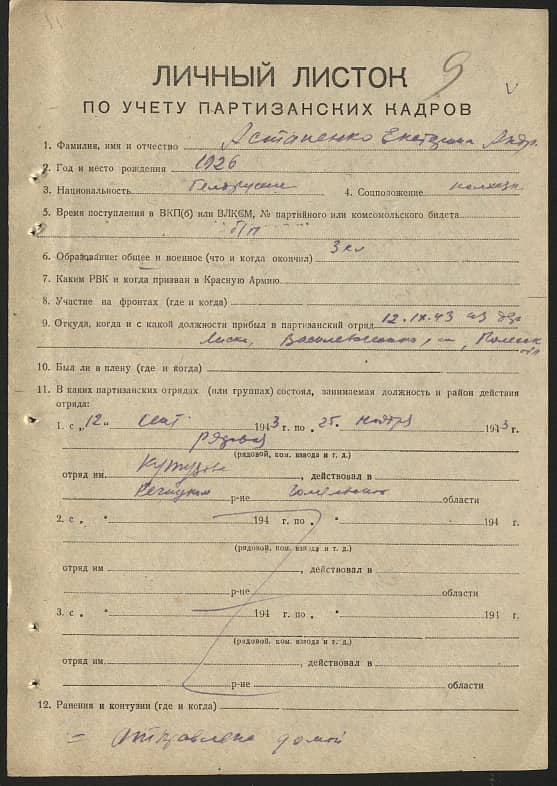 9
ЛИЧНЫЙ ЛИСТОК
ПО УЧЕТУ ПАРТИЗАНСКИХ КАДРОВ
1. Фамилия, имя и отчество Астапенко Екатерина Андр.
2. Год и место рождения 1926
3. Национальность 4. Соцположение
5. Время поступления в ВКП(б) или ВЛКСМ, № партийного или комсомольского билета
б/п
6. Образование: общее и военное (что и когда окончил) 3 кл
7. Каким РВК и когда призван в Красную Армию
8. Участие на фронтах (где и когда)
9. Откуда, когда и с какой должности прибыл в партизанский отряд 12.IX.43 из дер
Полесск
обл
10. Был ли в плену (где и когда)
11. В каких партизанских отрядах (или группах) состоял, занимаемая должность и район действия
отряда:
1. с „12" сент 1943 г. по „25" ноября 1943 г.
рядовой
(рядовой, ком. взвода и т. д.)
отряд им Кутузова, действовал в
Речицком р-не Гомельской области
2. с „ " 194 г. по „ " 194 г.
(рядовой, ком. взвода и т. д.)
отряд им , действовал в
р-не области
3. с „ " 194 г. по „ " 194 г.
(рядовой, ком. взвода и т. д.)
отряд им , действовал в
р-не области
12. Ранения и контузии (где и когда)
= отправлена домой